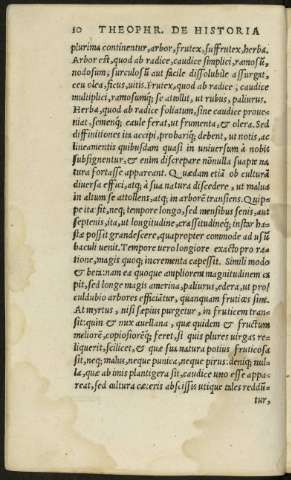 10 THEOPHR. DE HISTORIA
plurima continentur, arbor, frutex, suffrutex, herba.
Arbor est, quod ab radice, caudice simplici, ramosū,
nodosum, surculosū aut facile dissolubile assurgit,
ceu olea, ficus, uitis. Frutex, quod ab radice, caudice
multiplici, ramosumq; se attollit, ut rubus, paliurus.
Herba, quod ab radice foliatum, sine caudice proue-
niat, semenq; caule ferat, ut frumenta, & olera. Sed
diffinitiones ita accipi, probariq; debent, ut notis, ac
lineamentis quibusdam quasi in uniuersum à nobis
subsignentur, & enim discrepare nōnulla suapte na
tura fortasse appareant. Quædam etiā ob culturā
diuersa effici, atq; à sua natura discedere, ut malua
in altum se attollens, atq; in arborē transiens. Quip-
pe ita fit, neq; tempore longo, sed mensibus senis, aut
septenis, ita, ut longitudine, crassitudineq; instar ha-
stæ possit grandescere, quapropter commode ad usū
baculi uenit. Tempore uero longiore exacto pro ra
tione, magis quoq; incrementa capessit. Simili modo
& beta: nam ea quoque ampliorem magnitudinem ca
pit, sed longe magis amerina, paliurus, edera, ut pro
culdubio arbores efficiātur, quanquam frutices sint.
At myrtus, nisi sæpius purgetur, in fruticem tran-
sit: quin & nux auellana, quæ quidem & fructum
meliorē, copiosiorēq; feret, si quis plures uirgas re-
liquerit, scilicet, & quæ sua natura potius fruticosa
sit, neq; malus, neque punica, neque pirus: deniq; nul-
la, quæ ab imis plantigera sit, caudice uno esse appa-
reat, sed cultura cæteris abscissis utique tales reddū-
tur,